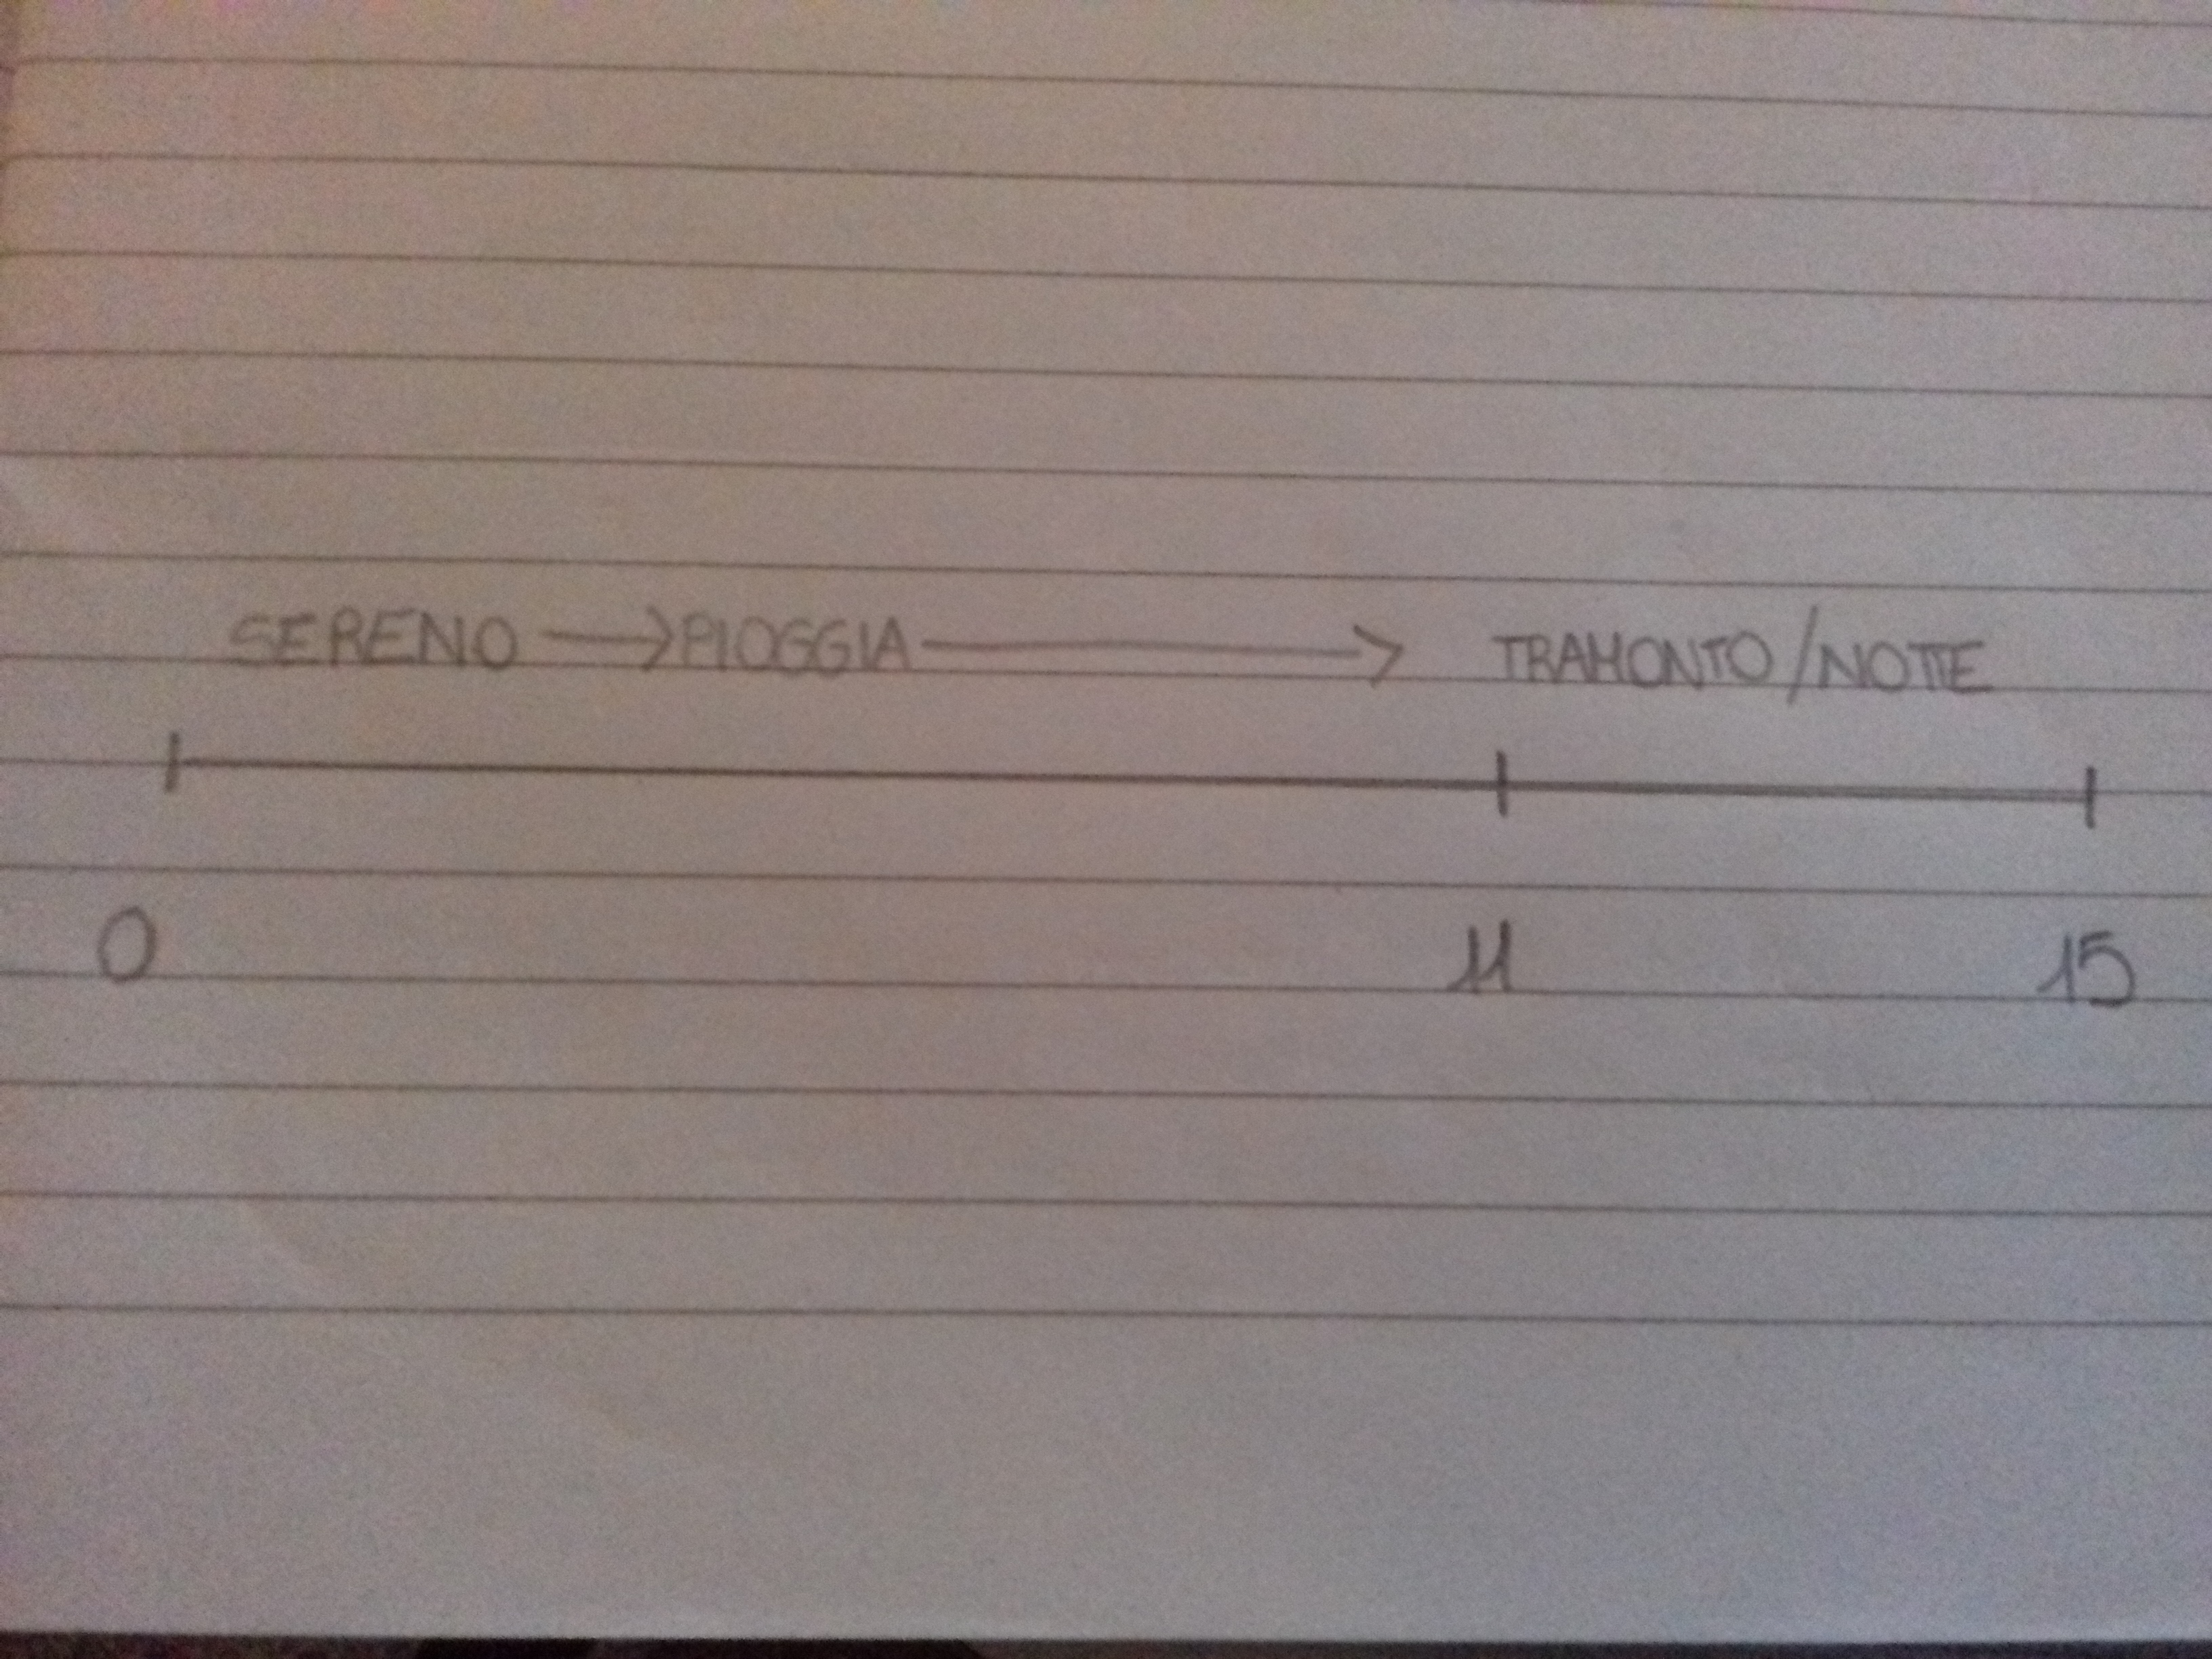 SERENO → PIOGGIA → TRAMONTO/NOTTE
0 11 15